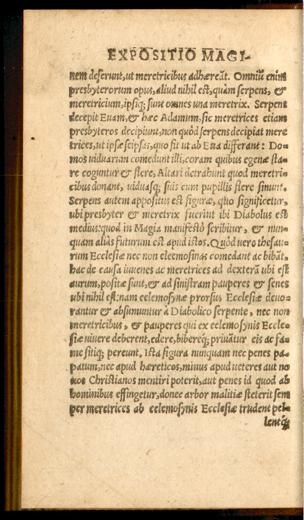 EXPOSITIO MAGI-
nem deserunt, ut meretricibus adhæreãt. Omniũ enim
presbyterorum opus, aliud nihil est, quàm serpens, &
meretricium, ipsiq; sunt omnes una meretrix. Serpens
decepit Euam, & hæc Adamum, sic meretrices etiam
presbyteros decipiunt, non quòd serpens decipiat mere
trices, ut ipsæ seipsas, quo fit ut ab Eua differant: Do-
mos uiduarum comedunt illi, coram quibus egenæ sta-
re coguntur & flere, Altari detrahunt quod meretri-
cibus donant, uiduasq; suis cum pupillis flere sinunt.
Serpens autem appositus est figuræ, quo significetur,
ubi presbyter & meretrix fuerint ibi Diabolus est
medius: quod in Magia manifestò scribitur, & nun-
quam alias futurum est apud istos. Quòd uero thesau-
rum Ecclesiæ nec non eleemosinas comedant ac bibãt,
hac de causa iuuenes ac meretrices ad dexterã ubi est
aurum, positæ sunt, & ad sinistram pauperes & senes
ubi nihil est: nam eelemosynæ prorsus Ecclesiæ deuo-
rantur & absumuntur à Diabolico serpente, nec non
meretricibus, & pauperes qui ex eelemosynis Eccle-
siæ uiuere deberent, edere, biberéq; priuãtur eis ac fa-
me sitiq; pereunt, Ista figura nunquam nec penes pa-
patum, nec apud hæreticos, minus apud ueteres aut no
uos Christianos mentiri poterit, aut penes id quod ab
hominibus effingetur, donec arbor malitiæ steterit sem
per meretrices ab eelemosynis Ecclesiæ trudent pel-
lentq;